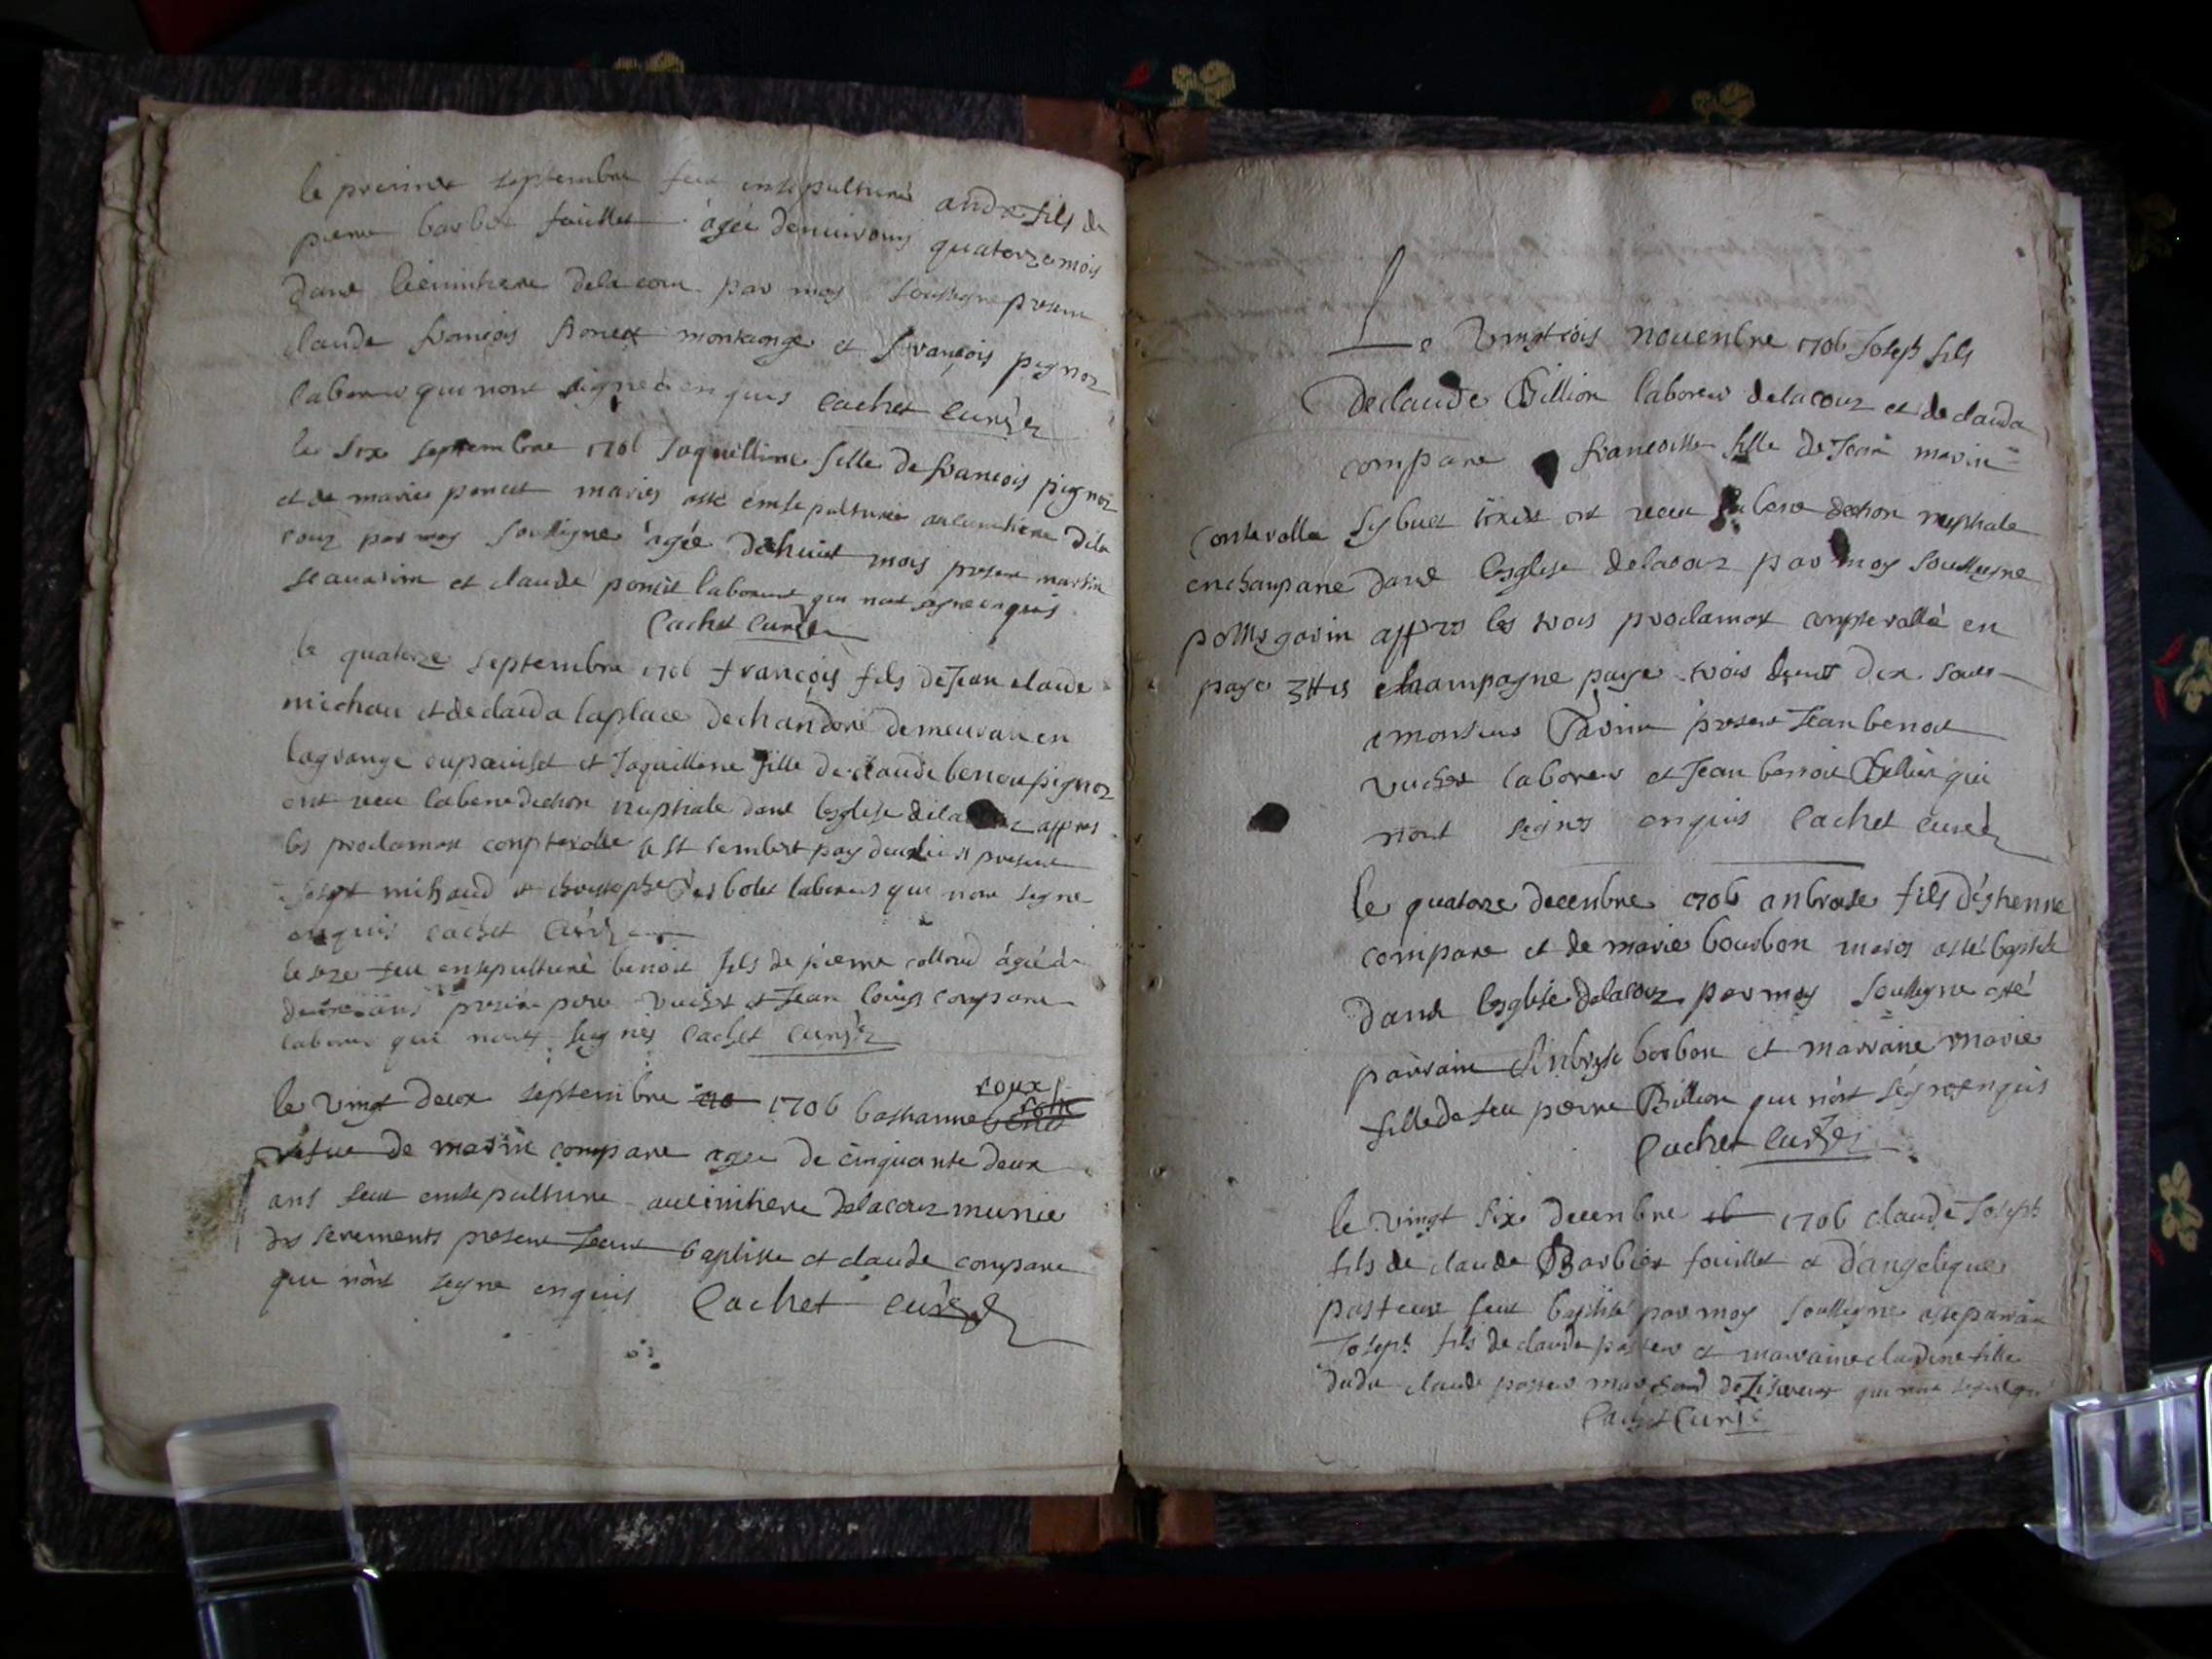 le premier septembre feu ensepulturé andre fils de
pierre barbier fouillet âgée denuirons quatorze mois
dans le cimitiere delacour par moy soussigne present
claude françois Ponect montange et françois pignoz
laboreur qui nont signe enquis Cachet Curé
le six septembre 1706 Jaquilline fille de françois pignoz
et de marie poncet maries esté ensepulturée au cimitiere dela
couz par moy soussigne âgée de huict mois present martin
et claude poncet laboreurs qui nont signe enquis
Cachet Curé
le quatorze septembre 1706 françois fils de Jean claude
michau et declauda laplace dechandore demeuran en
lagrange et Jaquilline fille declaude benoit pignoz
ont receu labenediction nuptiale dans lesglise dela couz appres
les proclamat present
michaud et christophe laboreurs qui nont signe
enquis Cachet Curé
le seze feu ensepulturé benoit fils de pierre collond âgée de
ans present pierre vuchet et Jean louis compare
laboreur qui nont signés Cachet Curé
le vingt deux septembre 1706 bastianne roux
vefue de martin compare agee de cinquante deux
ans feut ensepulturee au cimitiere delacouz munie
des serements present Jean baptiste et claude compare
qui nont signe enquis Cachet curé
Le vingt trois nouenbre 1706 Joseph fils
declaude Billion laboreur delacouz et de clauda
compare françoise fille de Jean marin
ont receu la benediction nuptiale
enchanpane dans lesglise delacouz par moy soussigne
appres les trois proclamat en
paye 3tt champagne paye trois liures dix sous
a monsieur Gavin present Jean benoit
vuchet laboreur et Jean benoit Billion qui
nont signes enquis Cachet curé
le quatorze decenbre 1706 anbroise fils d'éstienne
compare et de marie bourbon maries esté baptisé
dans lesglise delacouz par moy soussigne esté
parrain Anbroise borbon et marraine marie
fille de feu pierre Billion qui nont signes enquis
Cachet curé
le vingt six decenbre 1706 claude Joseph
fils de claude Barbier fouillet et d'angelique
pasteur feut baptisé par moy soussigne esté parrain
Joseph fils de claude pasteur et marraine claudine fille
dudit claude pasteur marchand de qui nont
Cachet Curé